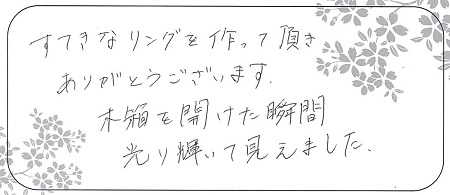 すてきなリングを作って頂き
ありがとうございます.
木箱を開けた瞬間
光り輝いて見えました.